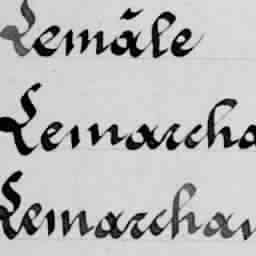 Lemâle
Lemarcha
Lemarchan